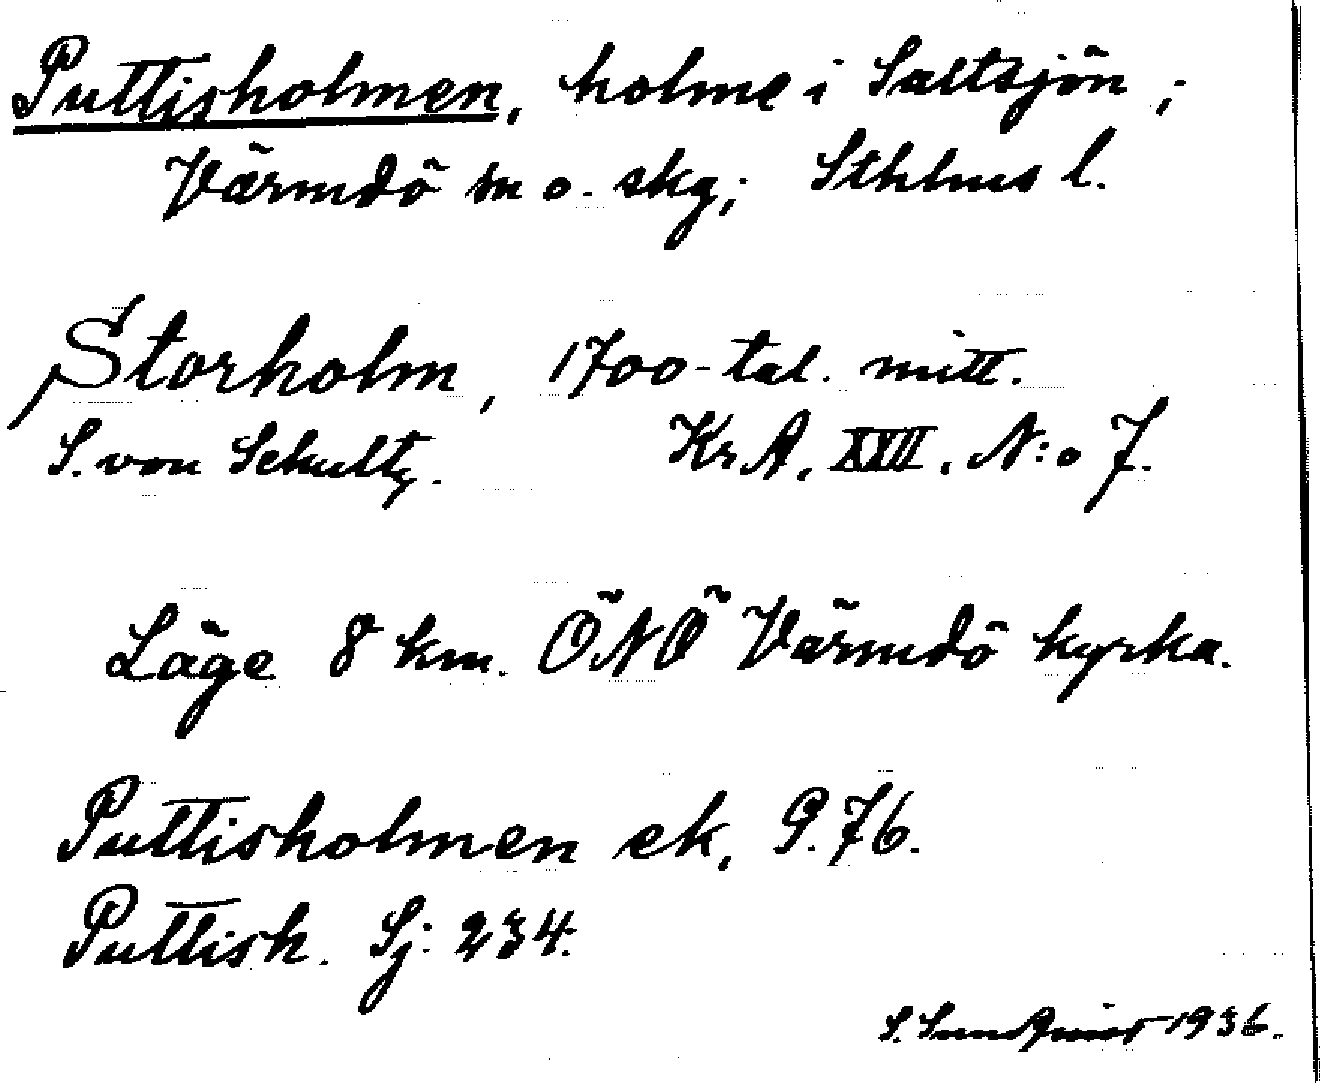 Puttisholmen, holme i Saltsjön,;
Värmdö m o. skg; Sthlms l.
Storholm, 1700-tal. mitt.
S. von Schultz. Kr A. XXII. N:o 7.
Läge 8 km. ÖNÖ Värmdö kyrka.
Puttisholmen ek. G. 76.
Puttish. Sj: 234.
S. 1936.